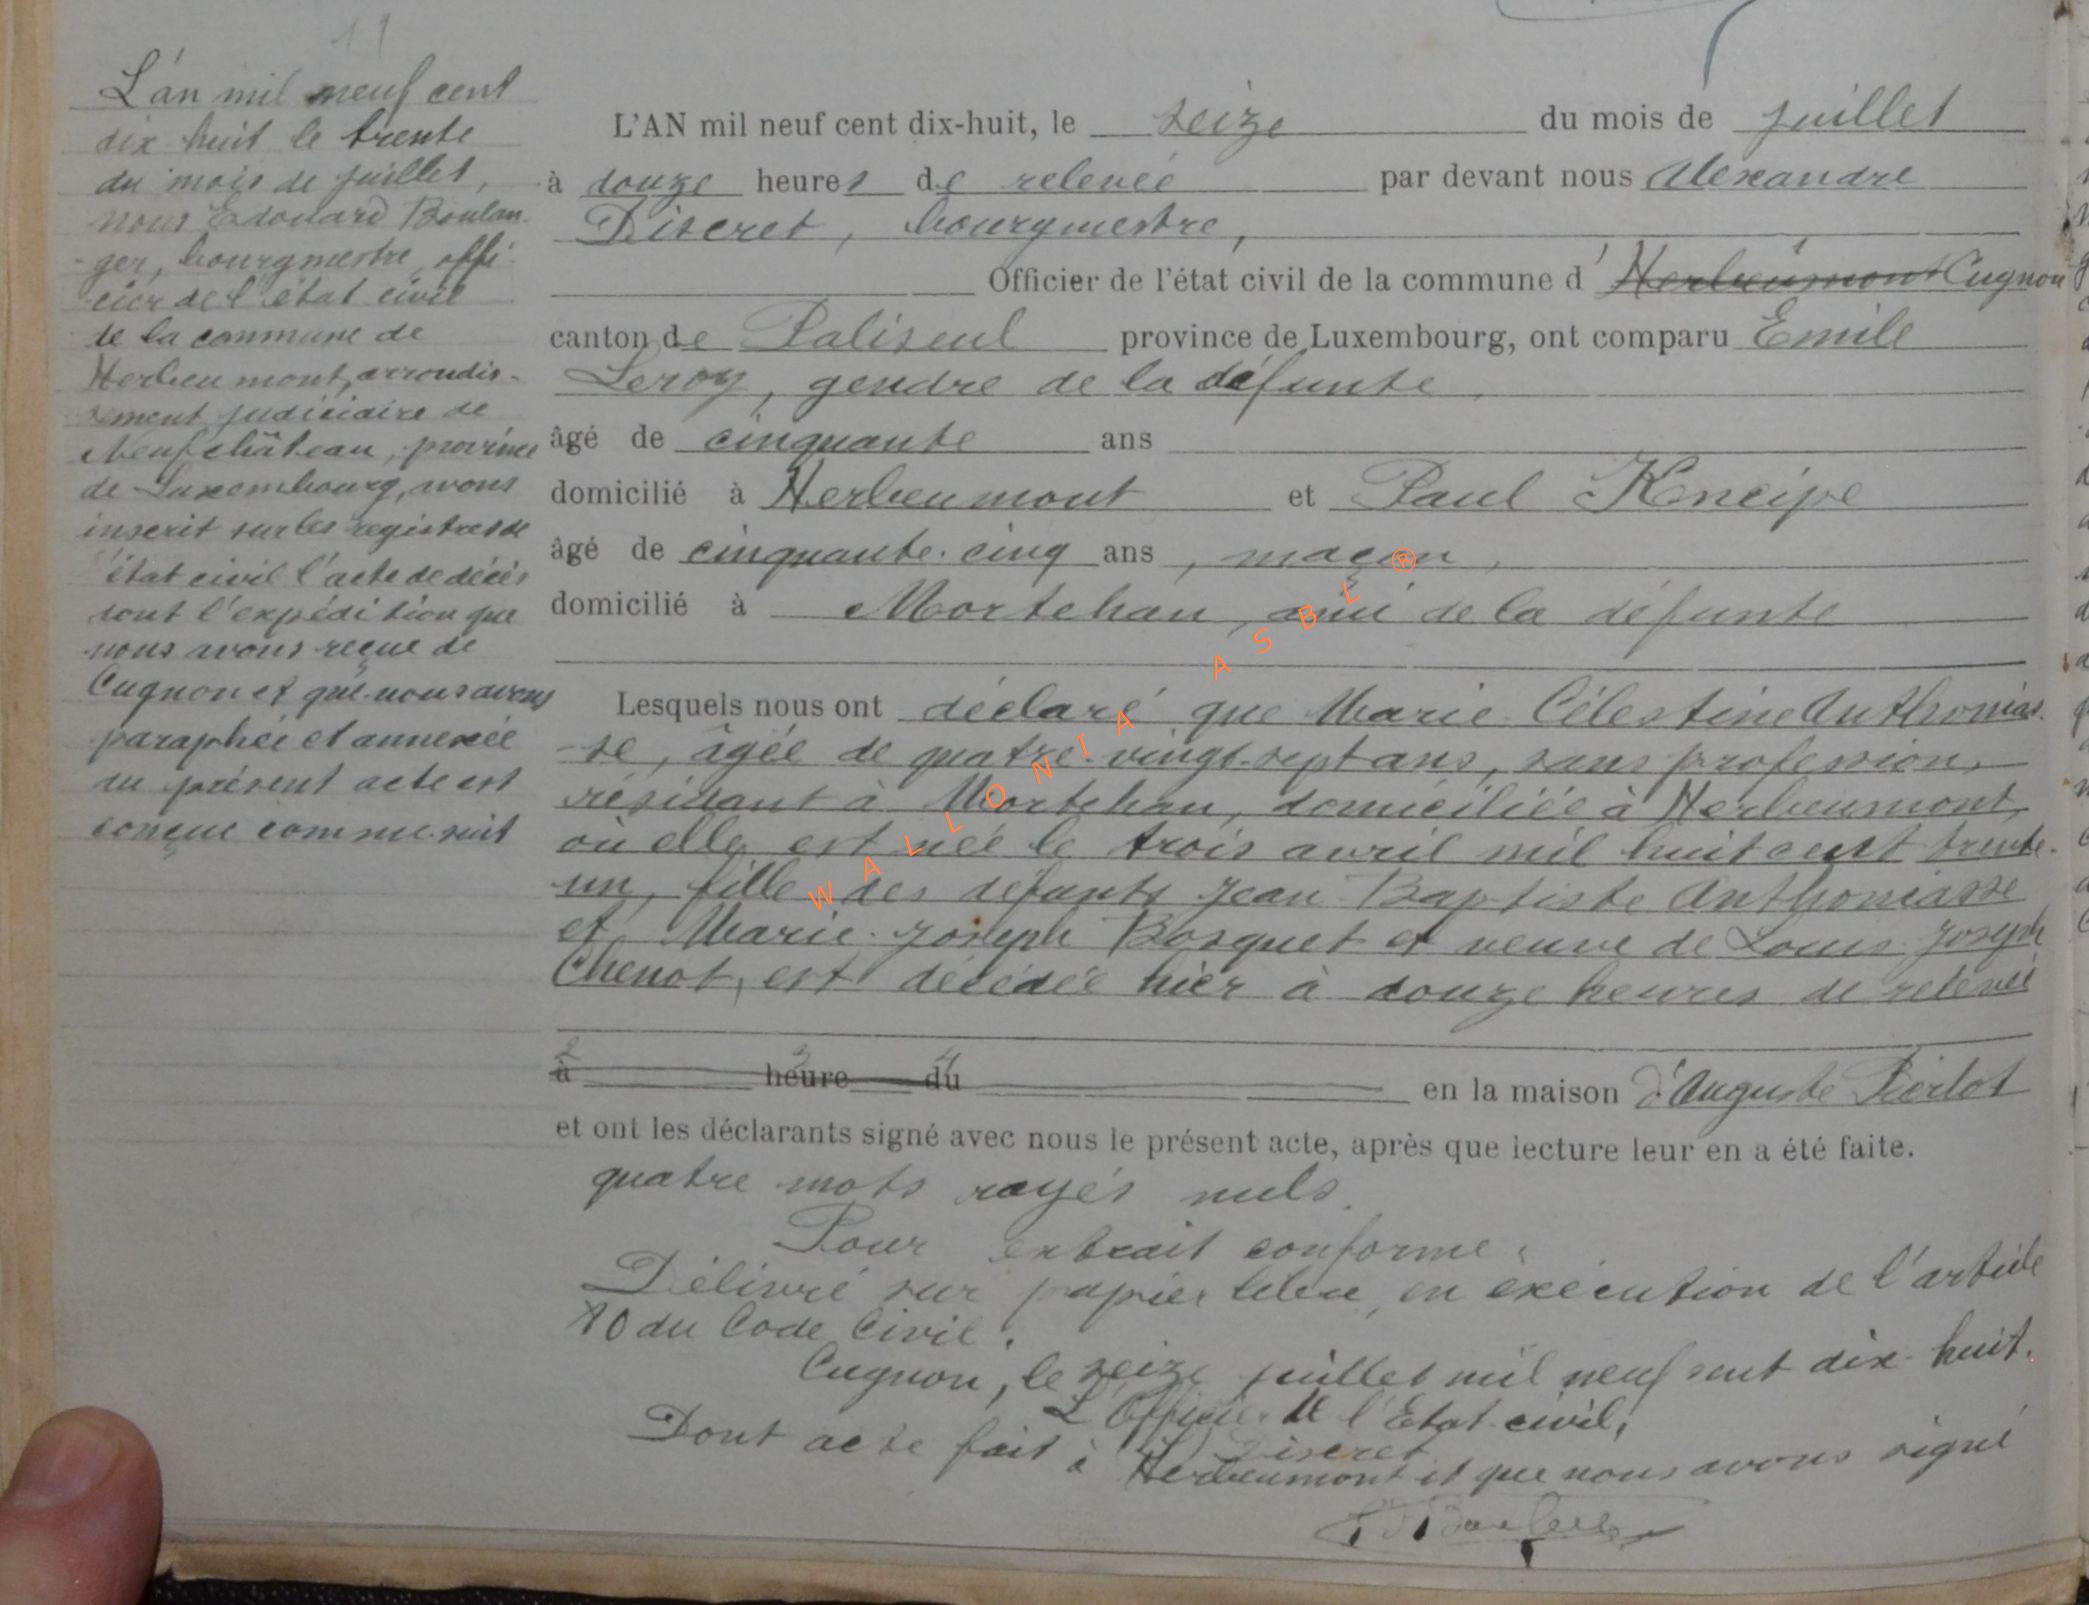 11
L'an mil neuf cent
dix huit le trente
du mois de juillet,
nous Edouard Boulan-
-ger, bourgmestre, offi-
cier de l'état civil
de la commune de
Herbeumont, arrondis-
sement judiciaire de
Neufchâteau, province
de Luxembourg, avons
inscrit sur les registres de
l'état civil l'acte de décès
dont l'expédition que
nous avons reçue de
Cugnon et que nous avons
paraphée et annexée
au présent acte est
conçue comme suit
L'AN mil neuf cent dix-huit, le seize du mois de juillet
à douze heures de relevée par devant nous Alexandre
Discret, bourgmestre,
Officier de l'état civil de la commune d' Herbeumont Cugnon
canton de Paliseul province de Luxembourg, ont comparu Emile
Leroy, gendre de la défunte,
âgé de cinquante ans
domicilié à Herbeumont et Paul Kneipe
âgé de cinquante-cinq ans, maçon,
domicilié à Mortehan, ami de la défunte
Lesquels nous ont déclaré que Marie Célestine Anthonias-
-se, âgée de quatre-vingt-sept ans, sans profession,
résidant à Mortehan, domiciliée à Herbeumont,
où elle est née le trois avril mil huit cent trente-
un, fille des défunts Jean Baptiste Anthoniasse
et Marie-Joseph Bosquet et veuve de Louis Joseph
Chenot, est décédée hier à douze heures de relevée
2 3 4
à heure du en la maison d'Auguste Pierlot
et ont les déclarants signé avec nous le présent acte, après que lecture leur en a été faite.
quatre mots rayés nuls.
Pour extrait conforme:
Délivré sur papier libre, en exécution de l'article
80 du Code Civil.
Cugnon, le seize juillet mil neuf cent dix-huit.
L'Officier de l'Etat civil,
Discret
Dont acte fait à Herbeumont et que nous avons signé
WALLONIA ASBL ®